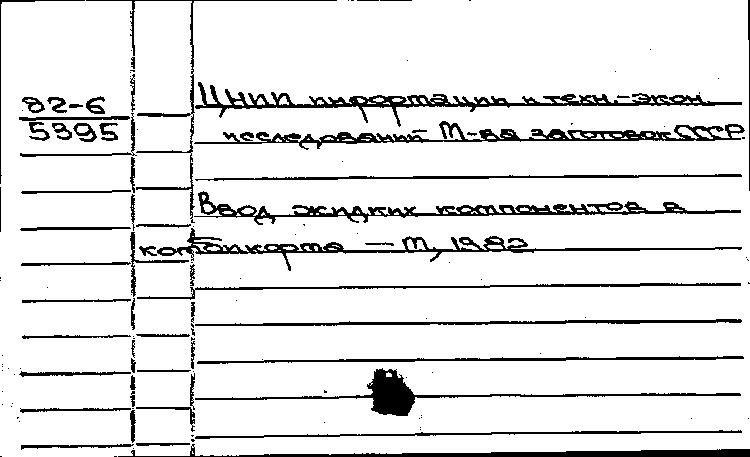 82-6
5395
ЦНИИ информации и техн.-экон.
исследований М-ва заготовок СССР
Ввод жидких компонентов в
комбикорма — М, 1982